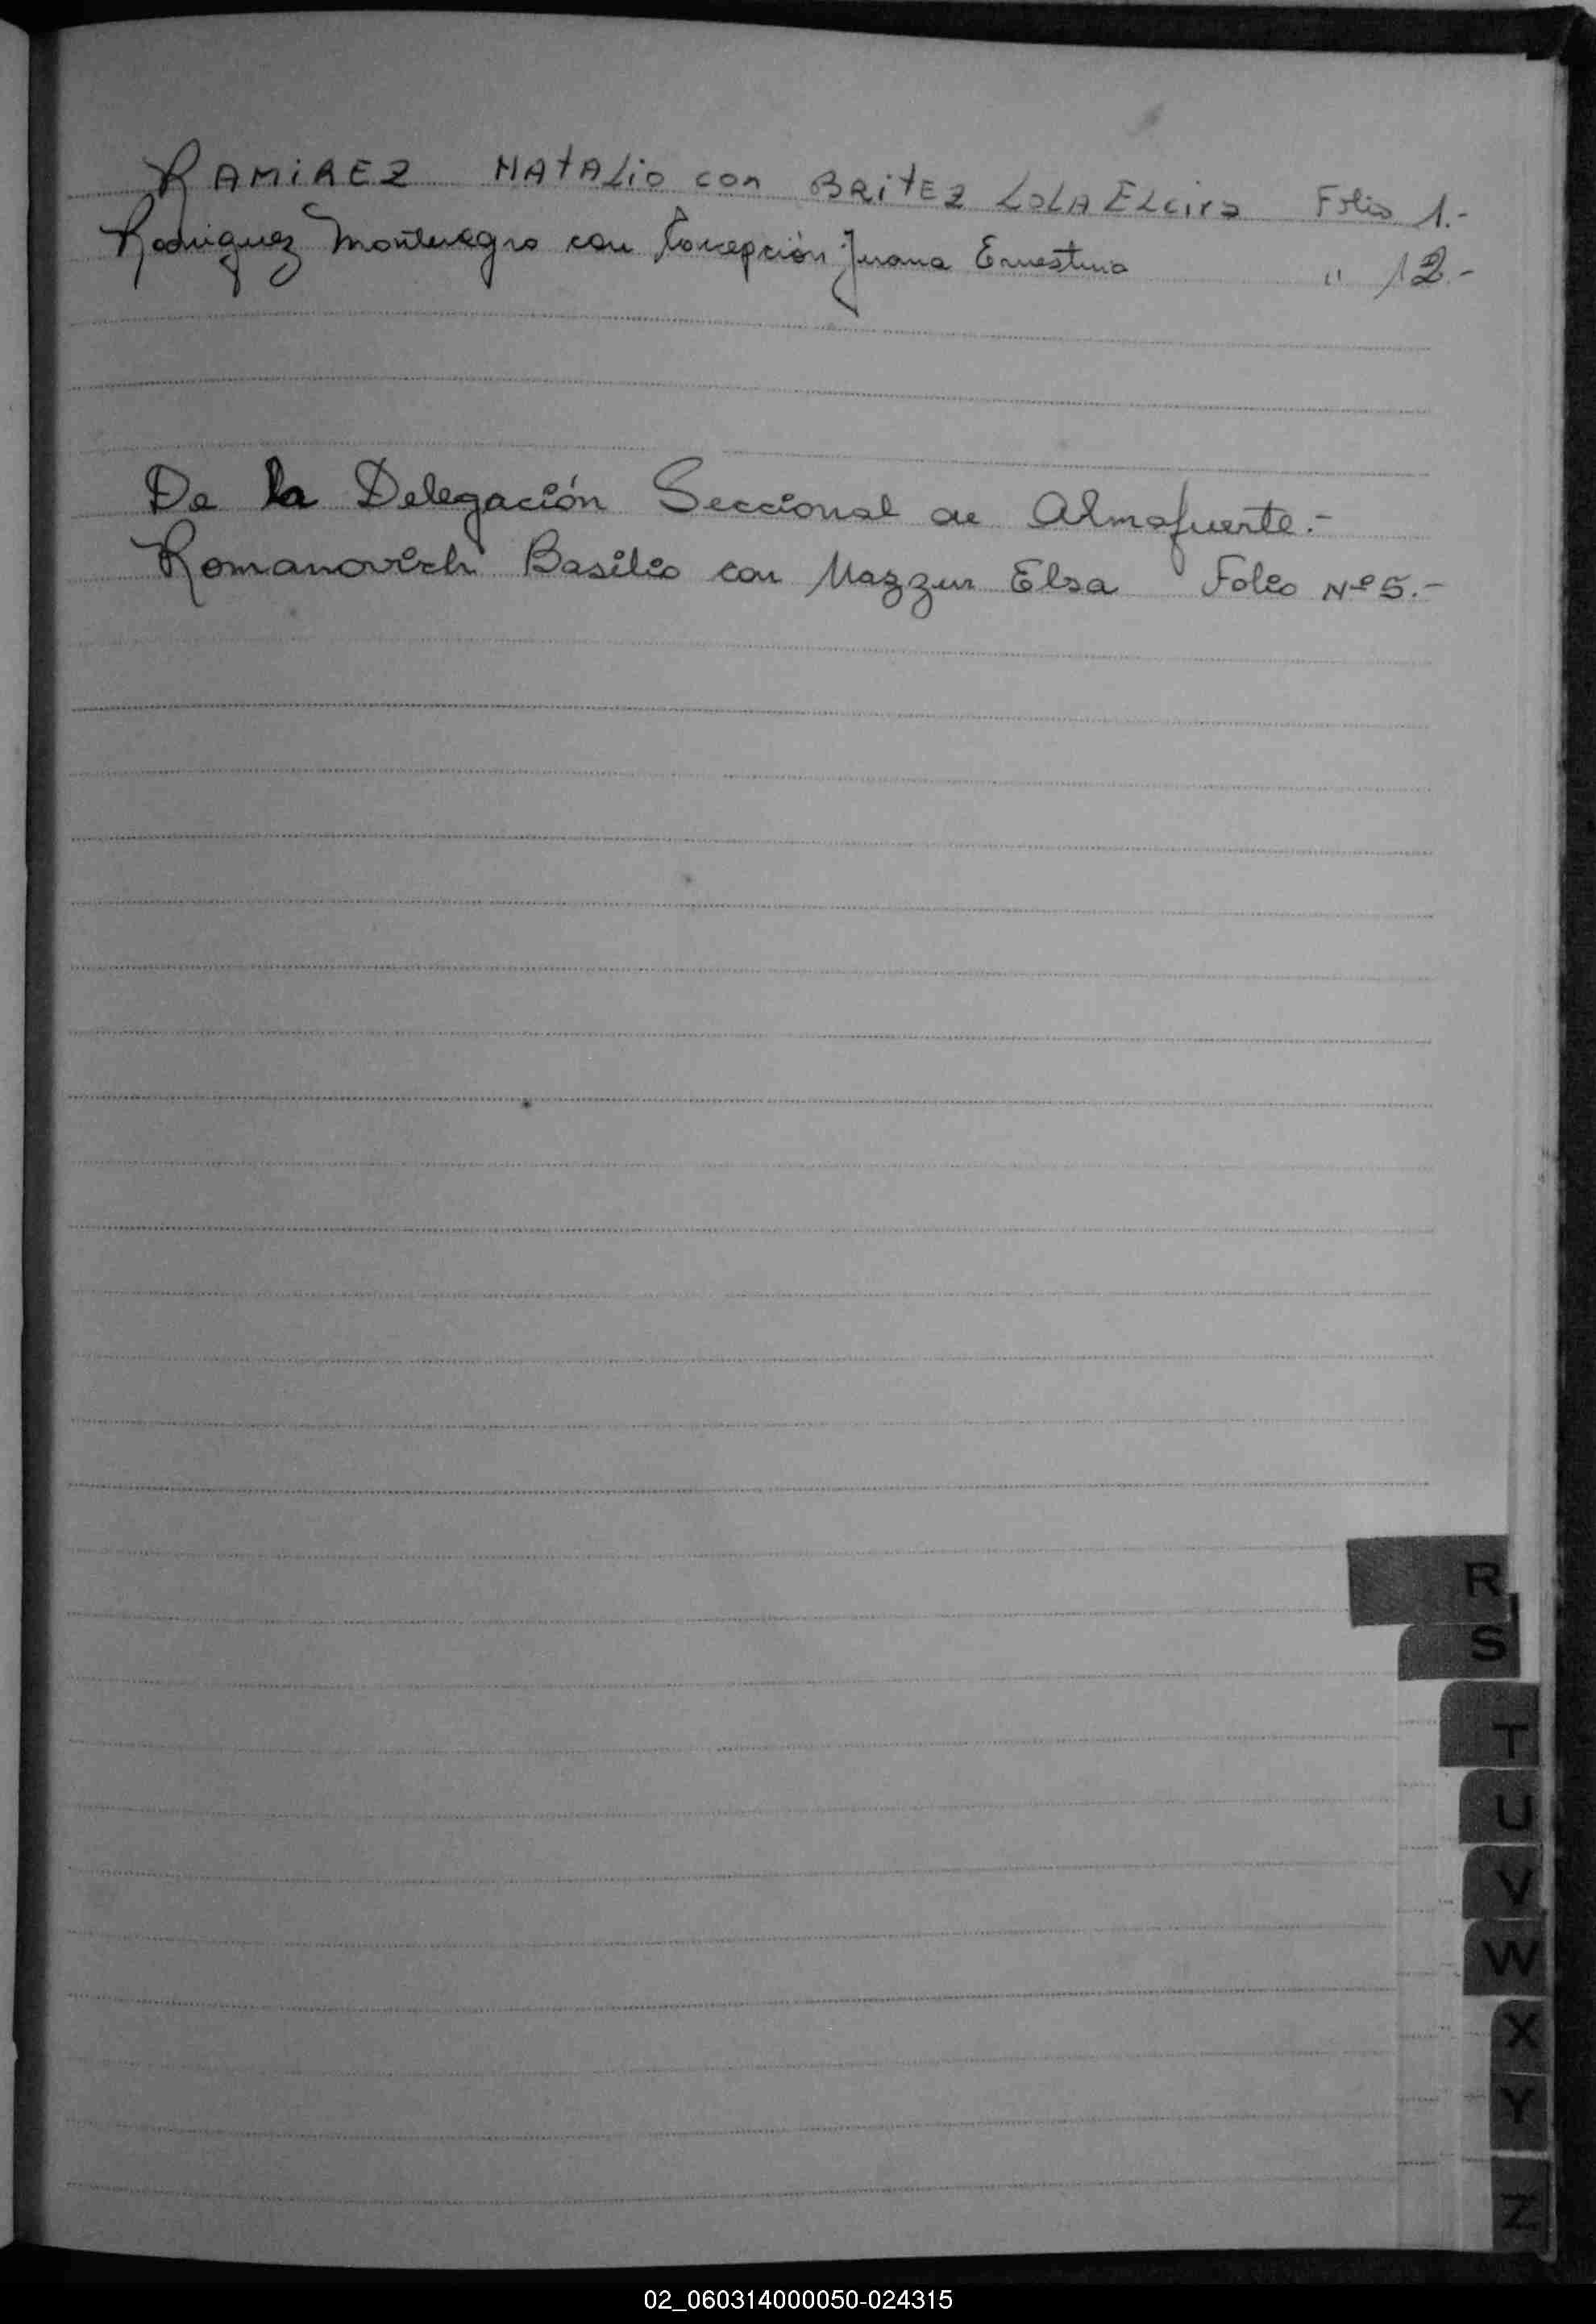 RAMIREZ NATALio con BRitEZ LOLA ELcira Folio 1.-
Rodriguez Montenegro con Concepción Juana Ernestina " 12.-
De la Delegación Seccional de Almafuerte.-
Romanovich Basilio con Mazzur Elsa Folio Nº 5.-
R
S
T
U
V
W
X
Y
Z
02_060314000050-024315